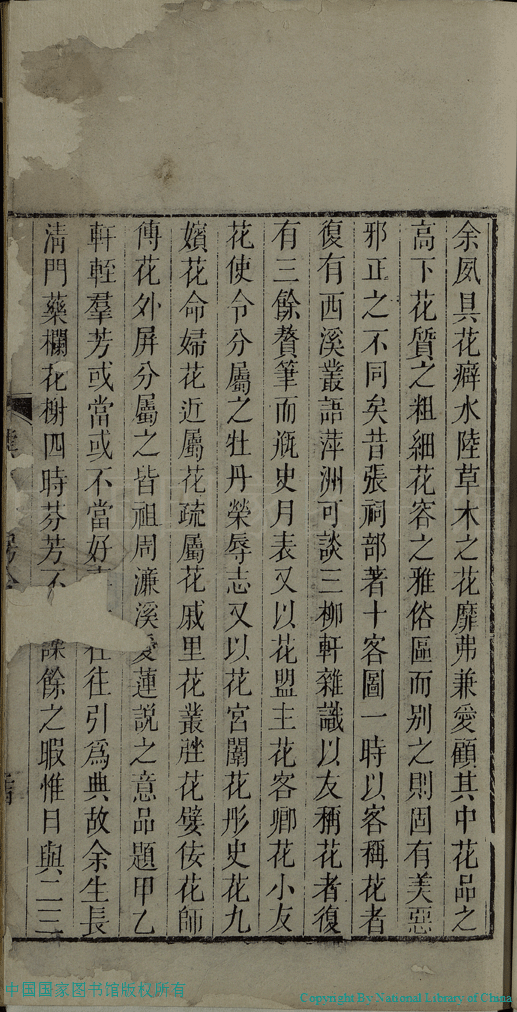 余夙具花癖水陸草木之花靡弗兼愛顧其中花品之
高下花質之粗細花容之雅俗區而别之則固有美惡
邪正之不同矣昔張祠部著十客圖一時以客稱花者
復有西溪叢語萍洲可談三柳軒雜識以友稱花者復
有三餘贅筆而瓶史月表又以花盟主花客卿花小友
花使令分屬之牡丹榮辱志又以花宮闈花彤史花九
嬪花命婦花近屬花疏屬花戚里花叢脞花嬖佞花師
傅花外屏分屬之皆祖周濂溪愛蓮説之意品題甲乙
軒輊羣芳或當或不當好往往引爲典故余生長
清門藥欄花榭四時芬芳不課餘之暇惟日與二三
中国国家图书馆版权所有
Copyright By National Library of China